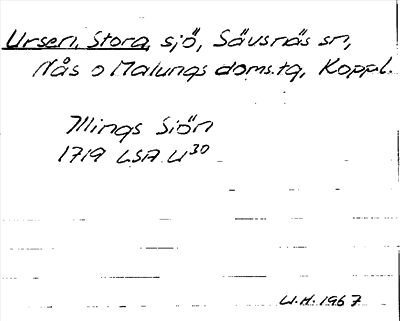 Ursen, Stora, sjö, Säusnäs sn,
Nås o Malungs doms.tg, Koppl.
Illings Siön
1719 LSA U30
W.H. 1967